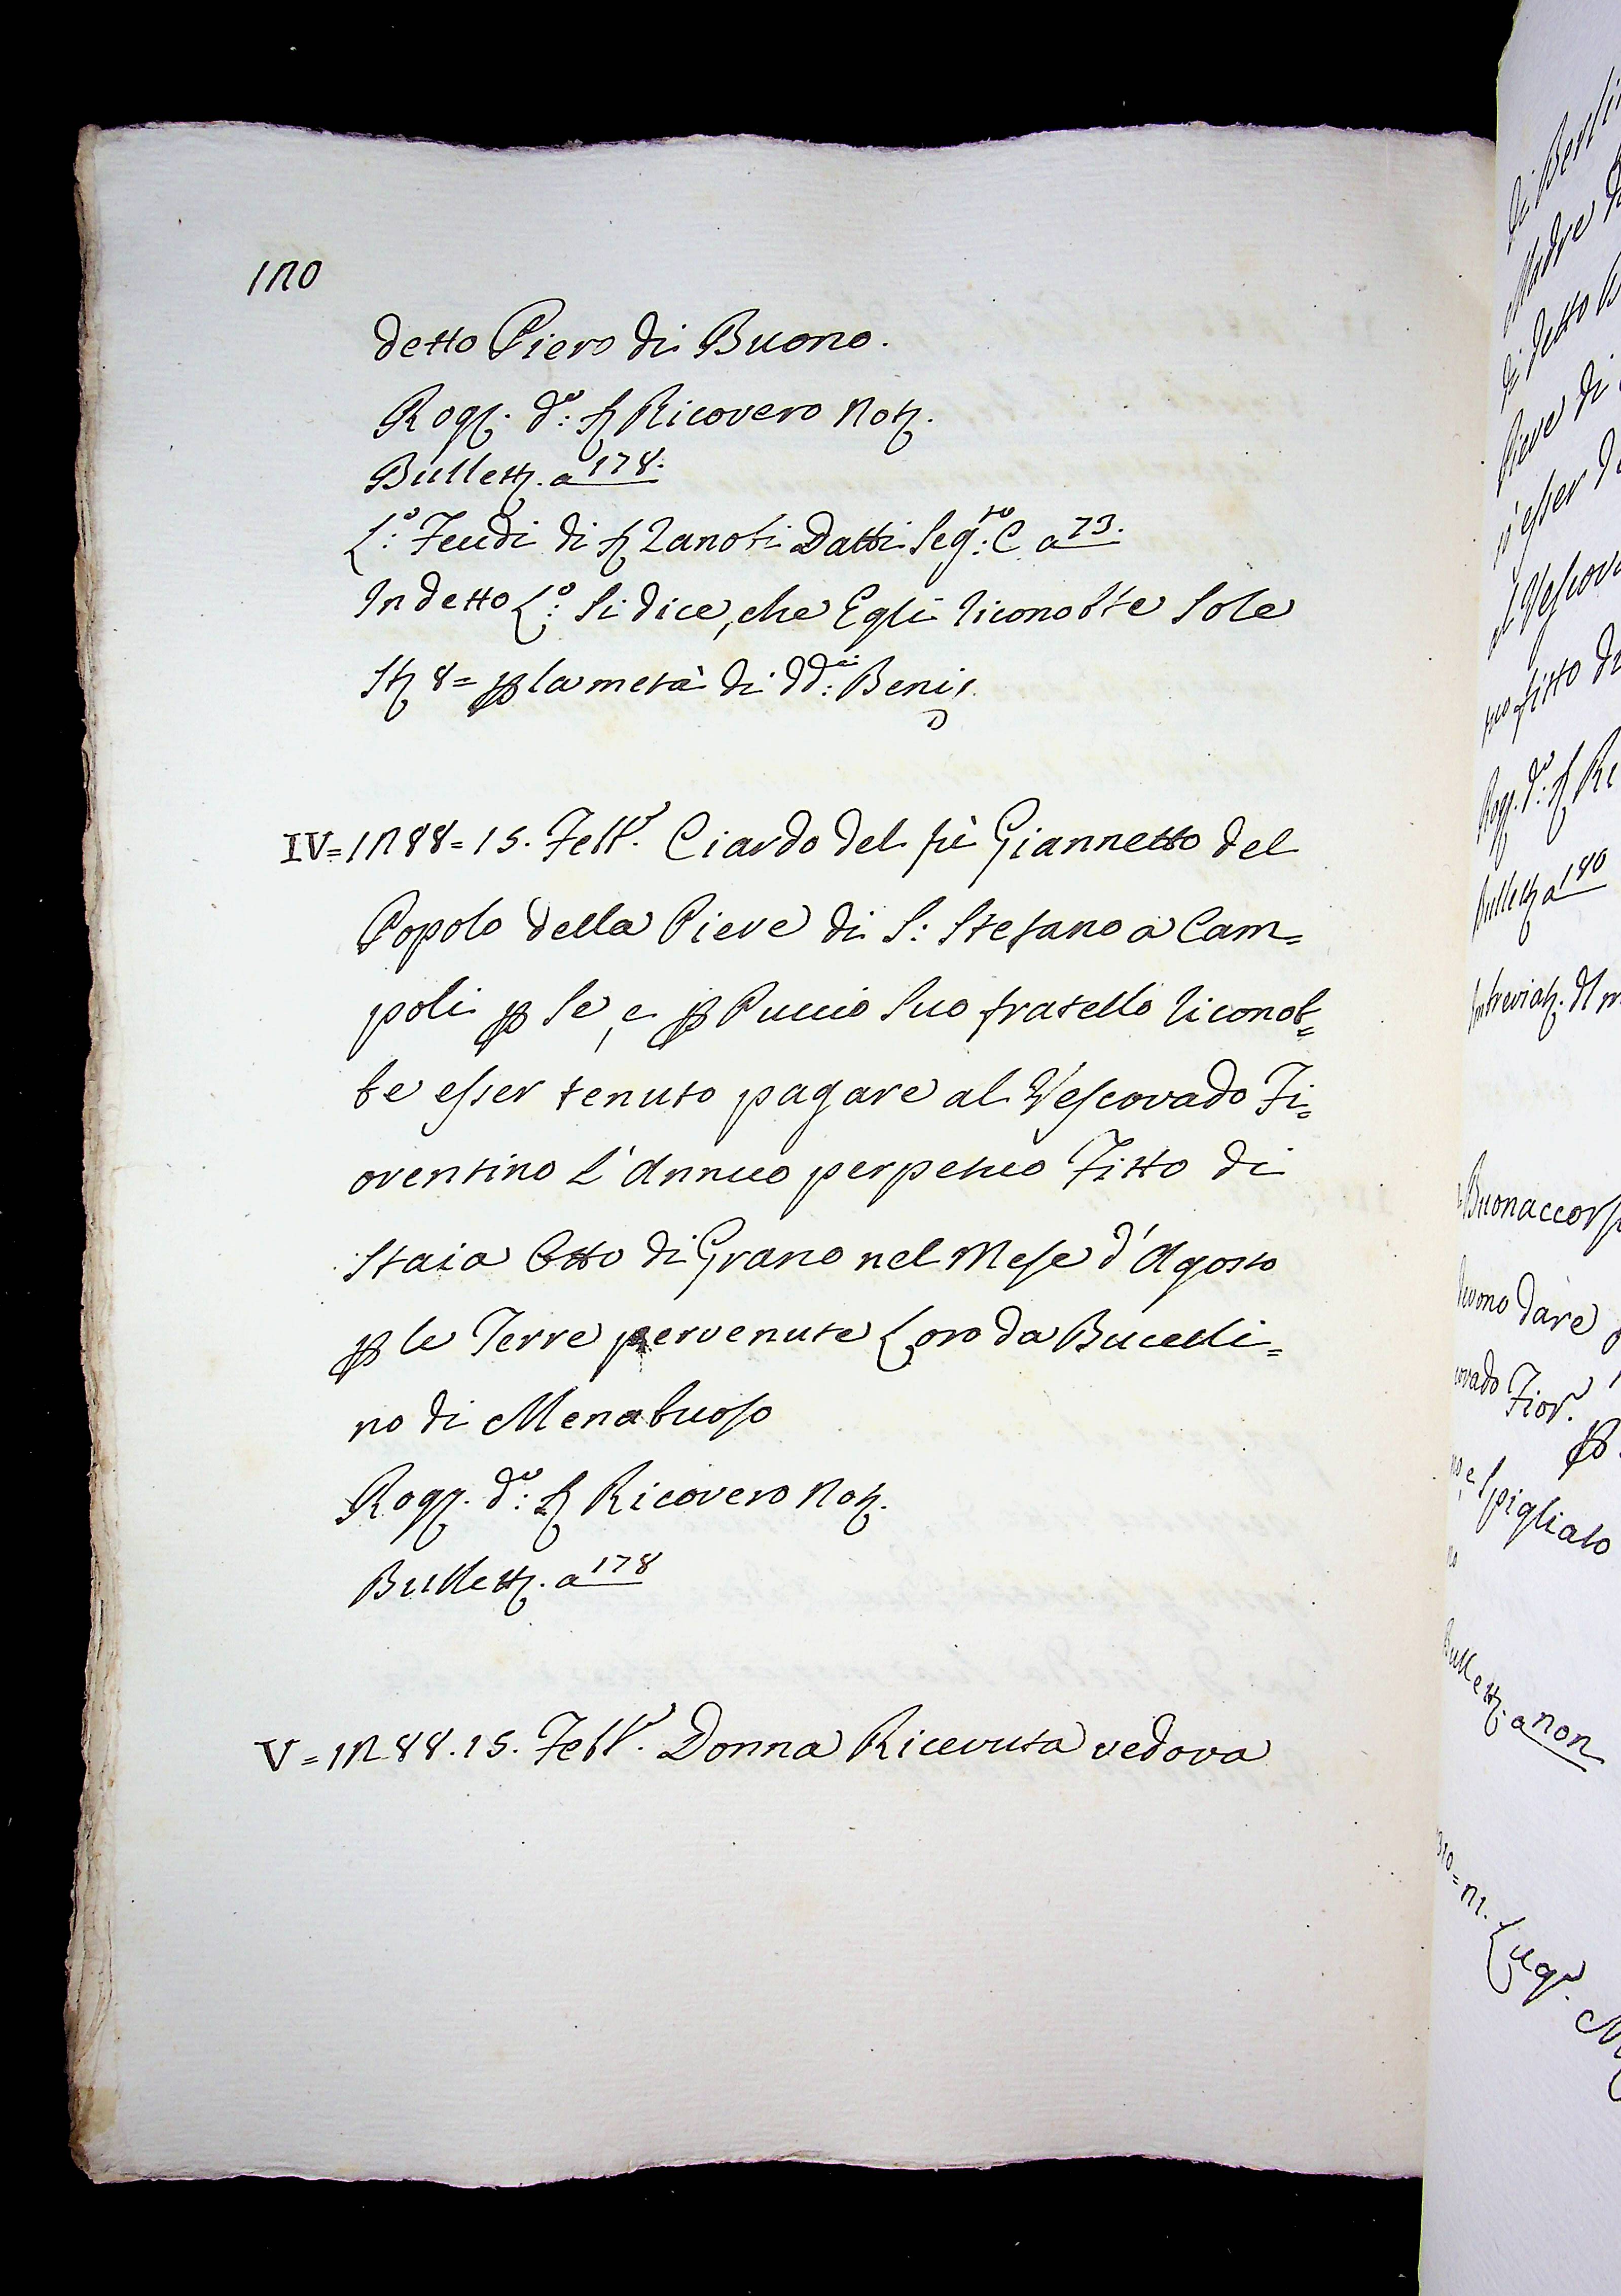 120
detto Piero di Buono.
Rogg. do: ser Ricovero Notz.
Bullett. a 178.
Lo: Feudi di ser Zanobi Datti Segto: C a 73.
In detto Lo: si dice, che Egli riconobbe sole
Stz 8= p la metà di ddi: Beni.
IV=1288=15. Febb. Ciardo del fù Giannetto del
Popolo della Pieve di S: Stefano a Cam=
poli p se, e p Puccio suo fratello riconob=
be esser tenuto pagare al Vescovado Fi=
orentino l'Annuo perpetuo Fitto di
Staia Otto di Grano nel Mese d'Agosto
p le Terre pervenute Loro da Bucelli=
no di Menabuoso
Rogg. do: ser Ricovero Notz.
Bullett. a 178
V=1288.15. Febb. Donna Ricevuta vedova
di Berli
Madre d
di detto B
Pieve di
esser d
al Vescova
fitto di
Rogg. do: ser Ri
Bullett. a 180
Buonaccors
devono dare
covado Fior.
e Spigliato
Bullett. a non
Lug.